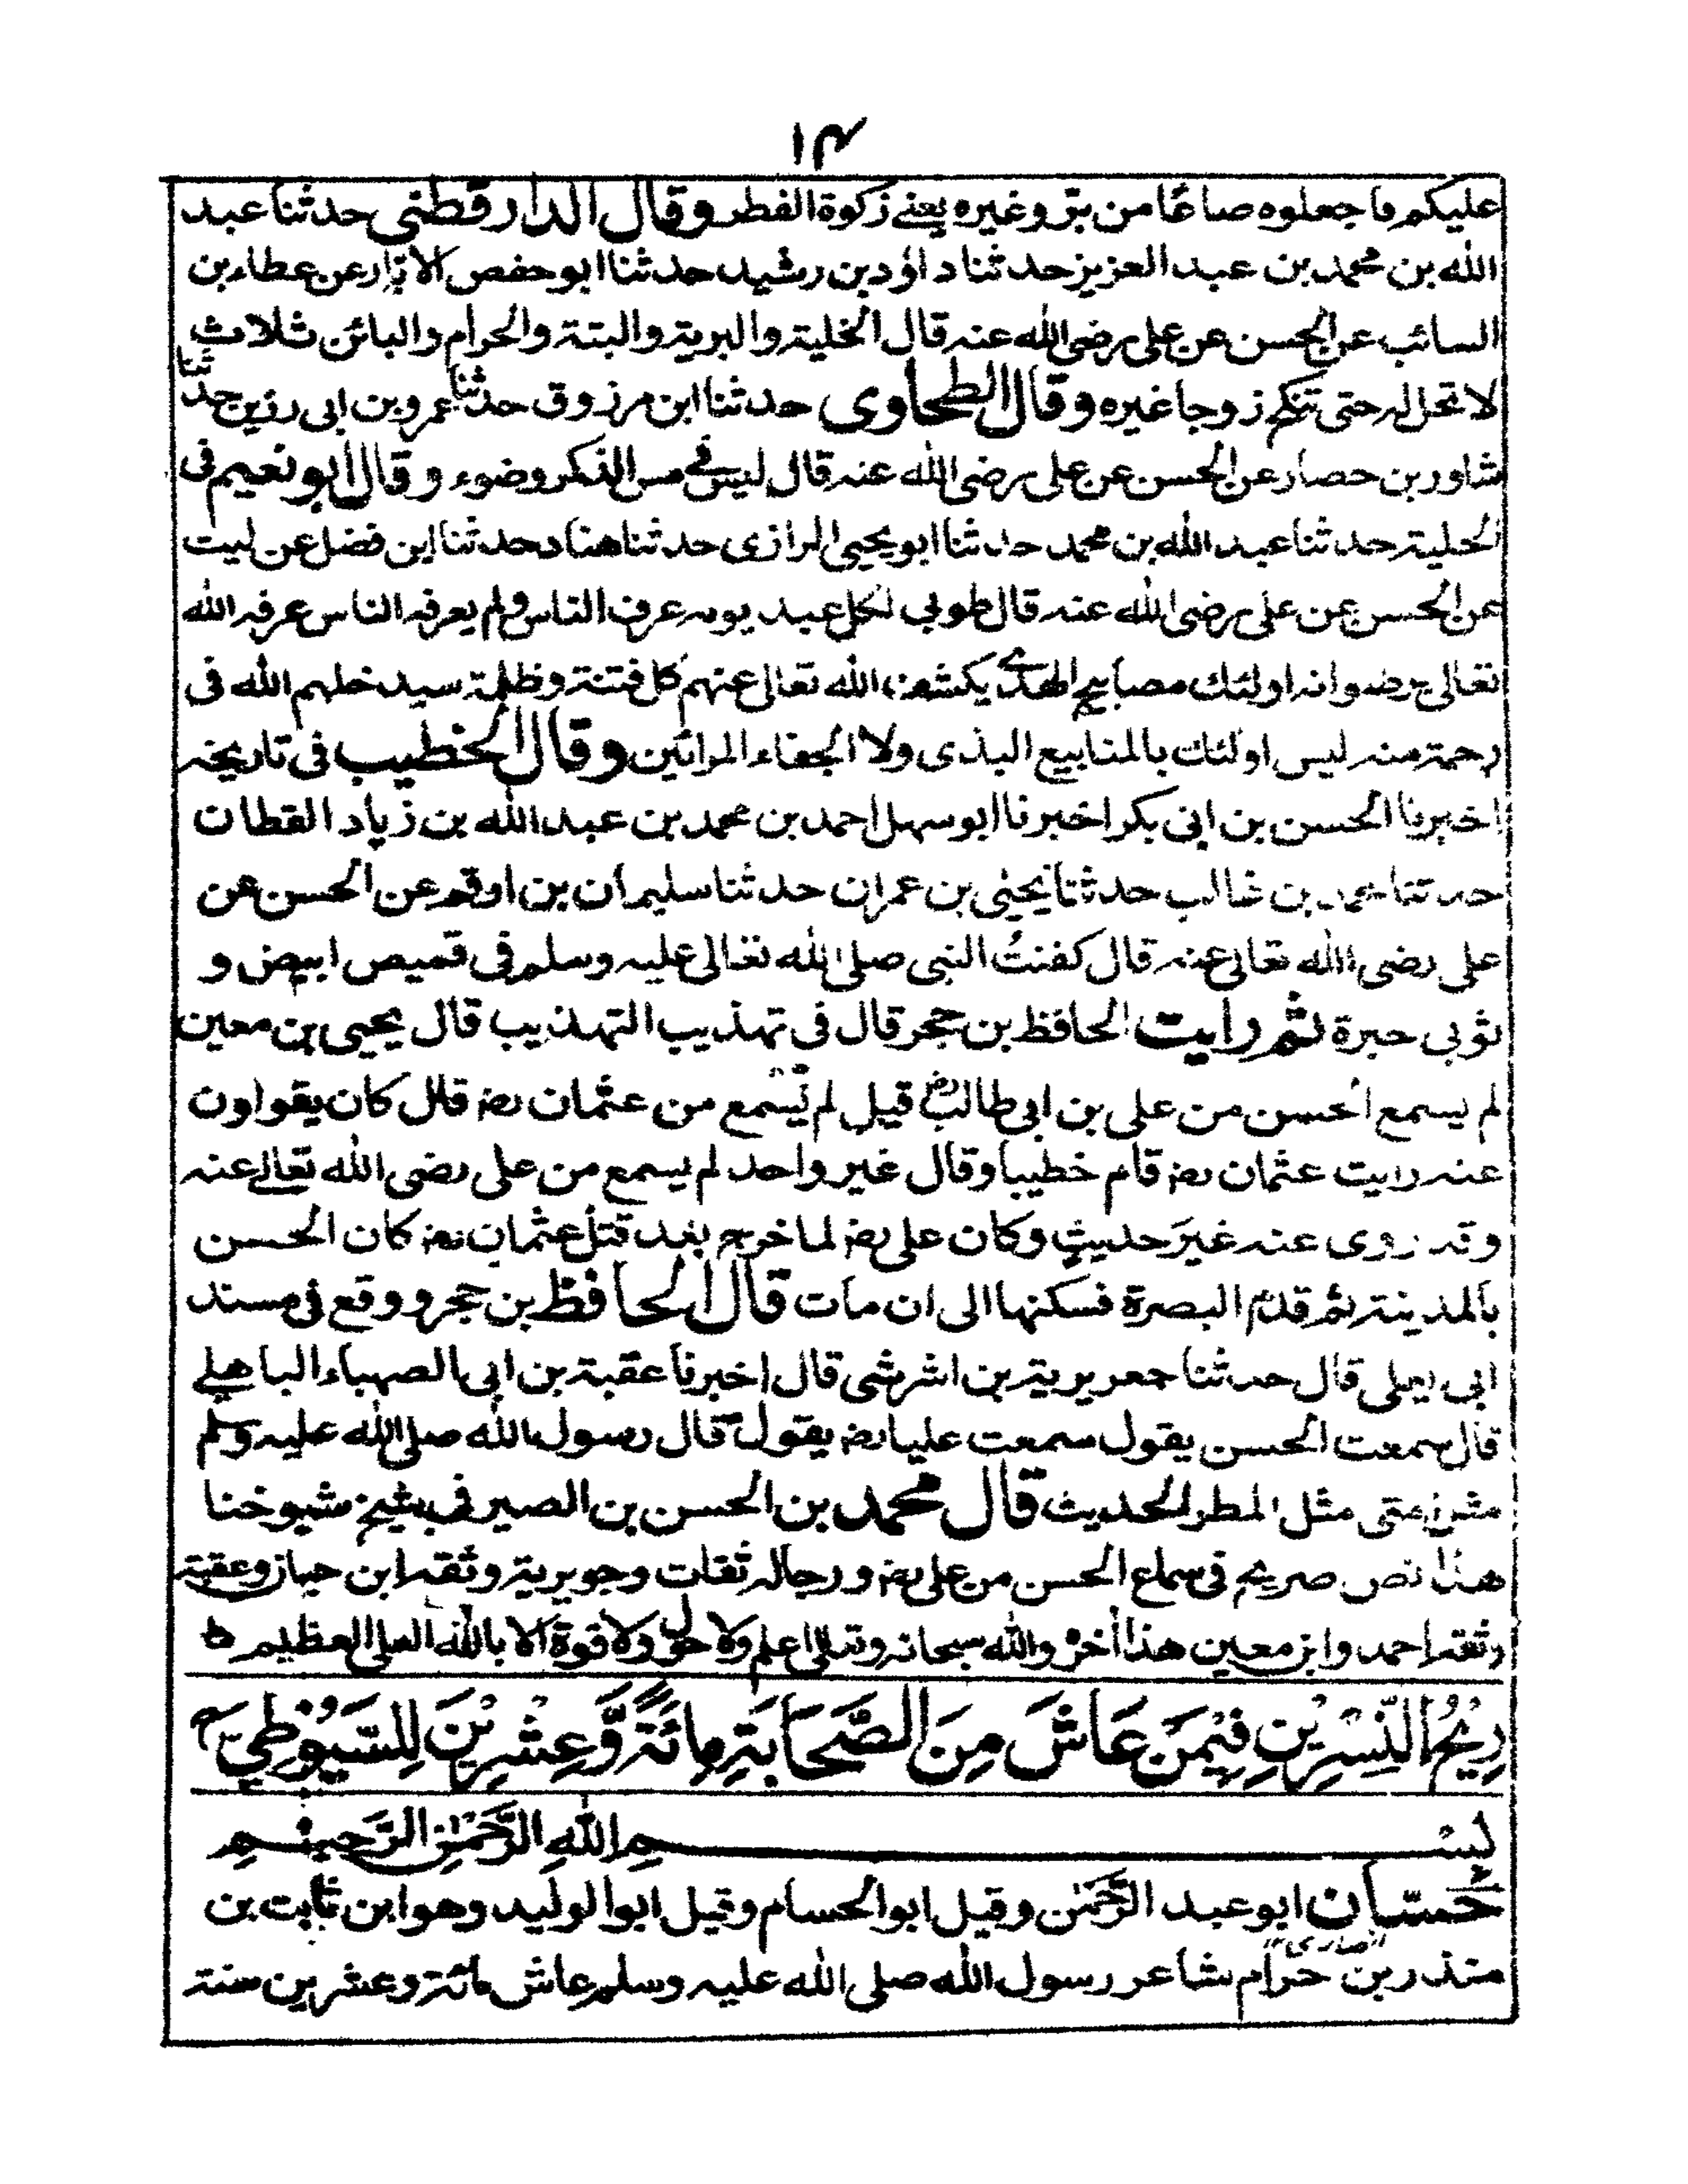 ١٤
عليكم فاجعلوه صاعا من بر وغيره يعنے زكوة الفطر وقال الدار قطنى حدثنا عبد
الله بن محمد بن عبد العزيز حدثنا داؤد بن رشيد حدثنا ابو حفص الابار عن عطاء بن
السائب عن الحسن عن على رضى الله عنه قال الخلية والبرية والبتة والحرام والبائن ثلاث
لا تحل له حتى تنكح زوجا غيره وقال الطحاوى حدثنا ابن مرزوق حدثنا عمرو بن ابى رزين حدثنا
شاور بن حصار عن الحسن عن على رضى الله عنه قال ليس فے مس الذكر وضوء وقال ابو نعيم فى
الحلية حدثنا عبد الله بن محمد حدثنا ابو يحيى الرازى حدثنا هناد حدثنا ابن فضل عن ليث
عن الحسن عن على رضى الله عنه قال طوبى لكل عبد يومه عرف الناس ولم يعرفه الناس عرفه الله
تعالى برضوانه اولئك مصابيح الهدے يكشف الله تعالى عنهم كل فتنة وظلمة سيدخلهم الله فى
رحمة منه ليس اولئك بالمذابيع البذى ولا الجفاء المرائين وقال الخطيب فى تاريخه
اخبرنا الحسن بن ابى بكر اخبرنا ابو سهل احمد بن محمد بن عبد الله بن زياد القطان
حدثنا محمد بن غالب حدثنا يحيٰى بن عمران حدثنا سليمان بن اوقم عن الحسن عن
على رضى الله تعالى عنه قال كفنتُ النبى صلى الله تعالى عليه وسلم فى قميص ابيض و
ثوبى حبرة ثم رايت الحافظ بن حجر قال فى تهذيب التهذيب قال يحيى بن معين
لم يسمع الحسن من على بن ابى طالب رض قيل لم يسمع من عثمان رضـ قال كان يقولون
عنه رايت عثمان رضـ قام خطيبا وقال غير واحد لم يسمع من على رضى الله تعالے عنه
وقد روى عنه غيرَ حديثٍ وكان على رضـ لما خرج بعد قتل عثمان رضـ كان الحسن
بالمدينة ثم قدم البصرة فسكنها الى ان مات قال الحافظ بن حجر ووقع فى مسند
ابى يعلى قال حدثنا جعريرية بن اشرشى قال اخبرنا عقبة بن ابى الصهباء الباهلے
قال سمعت الحسن يقول سمعت عليا رضـ يقول قال رسول الله صلى الله عليه وسلم
مثل امتى مثل المطر الحديث قال محمد بن الحسن بن الصيرفى شيخ شيوخنا
هذا نص صريح فى سماع الحسن من على رضـ ورجاله ثقات وجويرية وثقه ابن حبان وعقبة
وثقه احمد وابن معين هذا اٰخره والله سبحانه وتعالى اعلم ولا حول ولا قوة الا بالله العلى العظيم ط
رِيْحُ النِّسْرِيْنِ فِيْمَنْ عَاشَ مِنَ الصَّحَابَةِ مِائَةً وَّعِشْرِيْنَ لِلسُّيُوْطِيِّ
بِسْمِ اللهِ الرَّحْمٰنِ الرَّحِيْمِ
حَسّان ابو عبد الرَّحمٰن وقيل ابو الحسام وقيل ابو الوليد وهو ابن ثابت بن
منذر بن حرام انصارى شاعر رسول الله صلى الله عليه وسلم عاش مائة وعشرين سنة